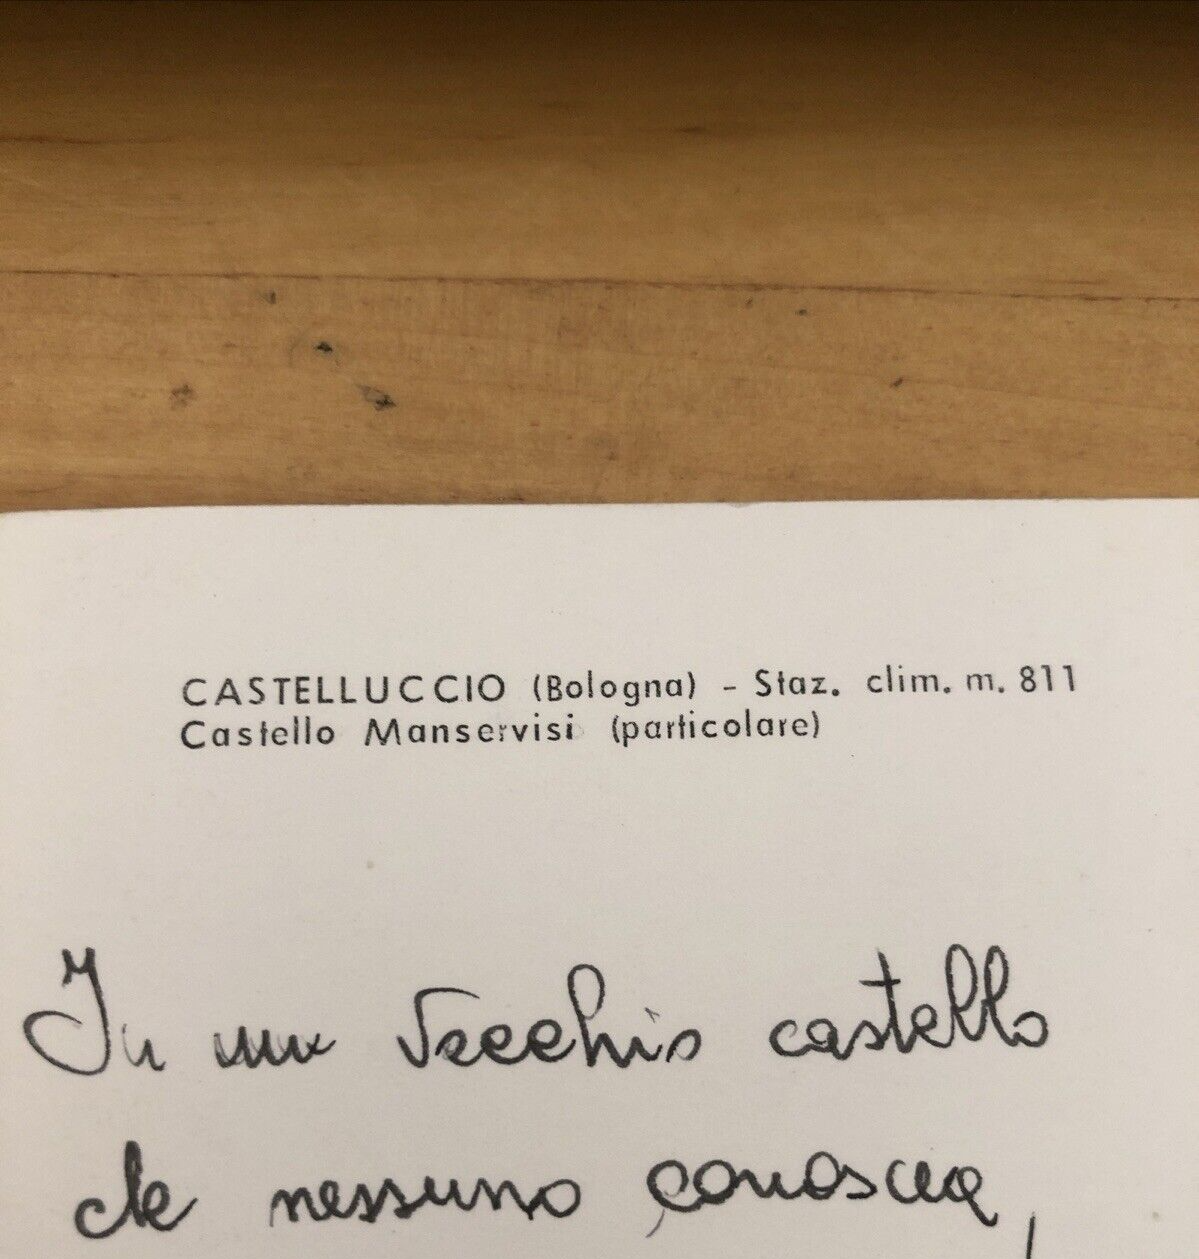 CASTELLUCCIO (Bologna) - Staz. clim. m. 811
Castello Manservisi (particolare)
In un vecchio castello
che nessuno conosceva,